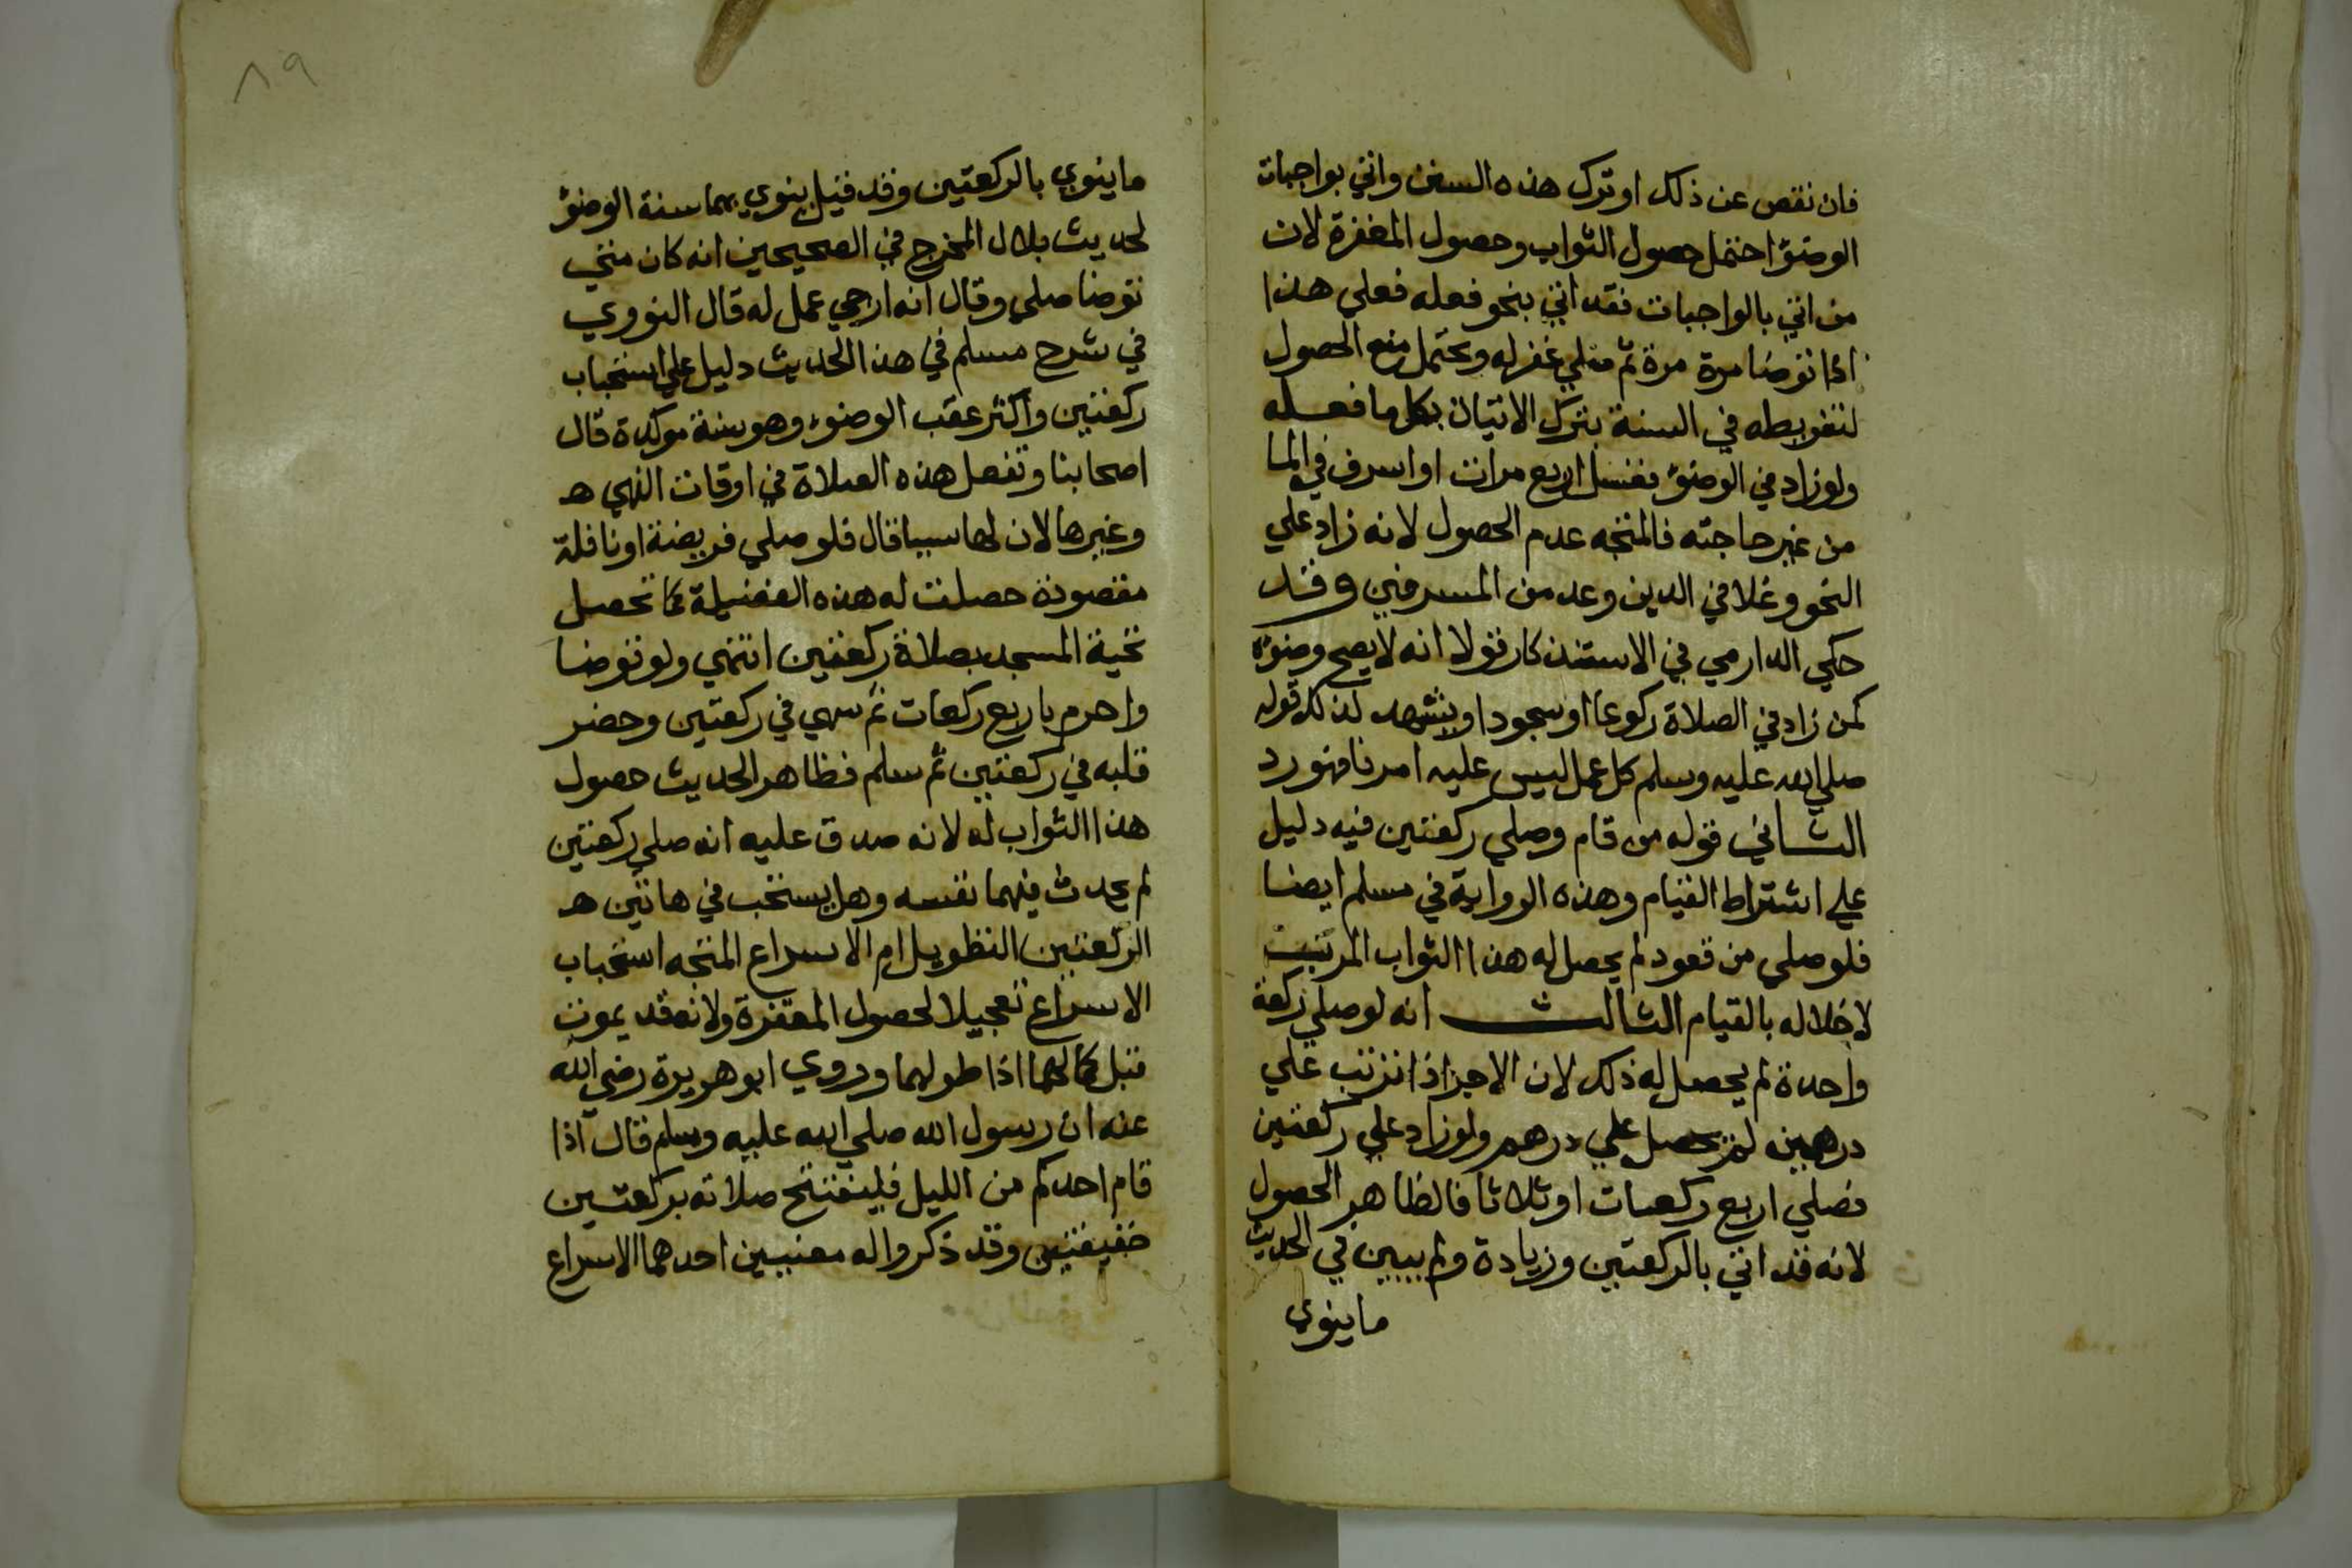 فان نقص عن ذلك او ترك هذه السنن واتي بواجبات
الوضوء احتمل حصول الثواب وحصول المغفرة لان
من اتي بالواجبات فقد اتي بنحو فعله فعلي هذا
اذا توضا مرة مرة ثم صلي غفر له ويحتمل منع الحصول
لتفريطه في السنة بترك الاتيان بكل ما فعله
ولو زاد في الوضوء فغسل اربع مرات او اسرف في الما
من غير حاجته فالمتجه عدم الحصول لانه زاد علي
النحو وغلا في الدين وعد من المسرفين وقد
حكي الدارمي في الاستذكار قولا انه لا يصح وضوءه
كمن زاد في الصلاة ركوعا او سجودا ويشهد لذلك قوله
صلي الله عليه وسلم كل عمل ليس عليه امرنا فهو رد
الثاني قوله من قام وصلي ركعتين فيه دليل
علي اشتراط القيام وهذه الرواية في مسلم ايضا
فلو صلي من قعود لم يحصل له هذا الثواب المرتب
لاخلاله بالقيام الثالث انه لو صلي ركعة
واحدة لم يحصل له ذلك لان الاجر اذا ترتب علي
درهمين لم يحصل علي درهم ولو زاد علي ركعتين
فصلي اربع ركعات او ثلاثا فالظاهر الحصول
لانه قد اتي بالركعتين وزيادة ولم يبين في الحديث
ما ينوي
٨٩
ما ينوي بالركعتين وقد قيل ينوي بهما سنة الوضوء
لحديث بلال المخرج في الصحيحين انه كان متي
توضا صلي وقال انه ارجي عمل له قال النووي
في شرح مسلم في هذا الحديث دليل علي استحباب
ركعتين واكثر عقب الوضوء وهو سنة موكدة قال
اصحابنا وتفعل هذه الصلاة في اوقات النهي هـ
وغيرها لان لها سببا قال فلو صلي فريضة او نافلة
مقصودة حصلت له هذه الفضيلة كما تحصل
تحية المسجد بصلاة ركعتين انتهي ولو توضا
واحرم باربع ركعات ثم سهي في ركعتين وحضر
قلبه في ركعتين ثم سلم فظاهر الحديث حصول
هذا الثواب له لانه صدق عليه انه صلي ركعتين
لم يحدث فيهما نفسه وهل يستحب في هاتين هـ
الركعتين التطويل ام الاسراع المتجه استحباب
الاسراع تعجيلا لحصول المغفرة ولانه قد يموت
قبل كمالهما اذا طولهما وروي ابو هريرة رضي الله
عنه ان رسول الله صلي الله عليه وسلم قال اذا
قام احدكم من الليل فليفتتح صلاته بركعتين
خفيفتين وقد ذكروا له معنيين احدهما الاسراع